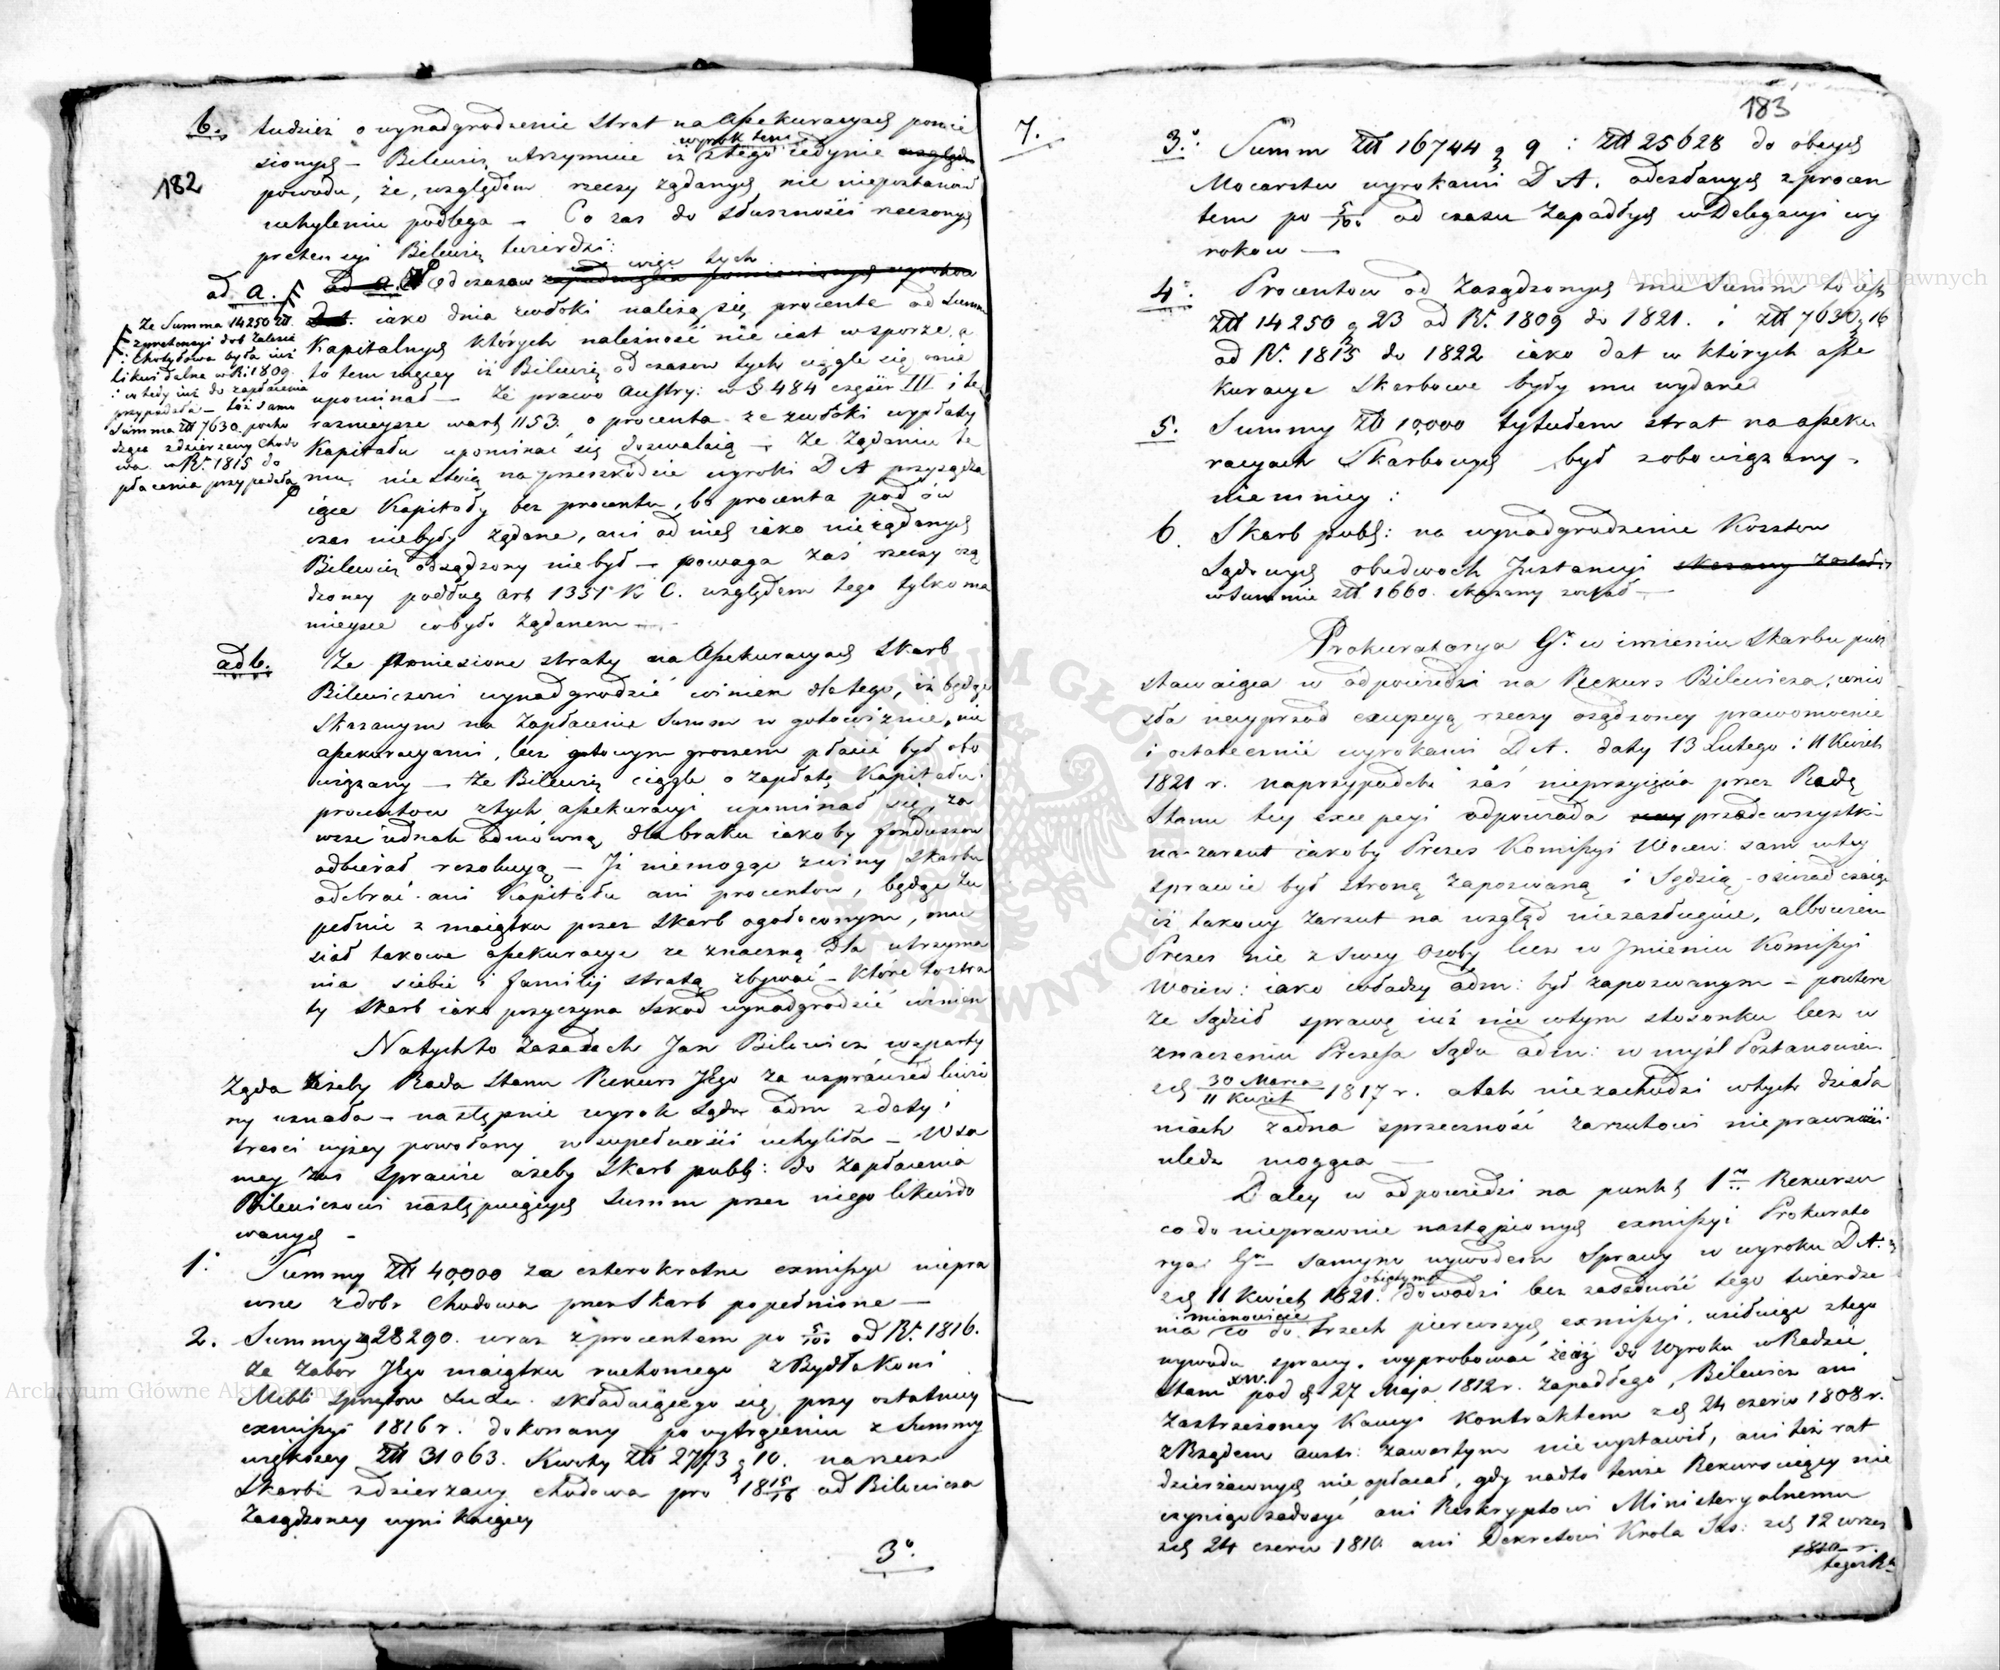 182
6. tudzież o wynadgrodzenie strat na Assekuracyach ponie
sionych – Bilewicz utrzymuie iż wyrok ten z tego iedynie
powodu, że, względem rzeczy żądanych nie niepostanowił
uchyleniu podlega – Co zas do słusznosci rzeczonych
pretensyi Bilewicz twierdzi:
ad a. Od czasow więc tych
iako dnia zwłoki należą się procenta od Summ
Kapitalnych których należność nie iest w sporze, a
to tem więcey iż Bilewicz od czasow tych ciągle się o nie
upominał – Że prawo Austry: w § 484 części III i te
raznieysze w art 1153, o procenta ze zwłoki wypłaty
Kapitału upominać się dozwalaią – Że żądaniu te
mu, nie stoią na przeszkodzie wyroki D A przysądza
iące Kapitały bez procentu, bo procenta pod ów
czas niebyły żądane, ani od nich iako nieżądanych
Bilewicz odsądzony niebył – powaga zaś rzeczy osą
dzoney podług art 1351 K C. względem tego tylko ma
mieysce co było żądanem –
Że Summa 14250 zł.
z pretensyi dob Zalesie
i Chotyłowa była iuż
likwidalna w R: 1809
i wtedy iuż do zapłacenia
przypadała – toż samo
Summa złł 7630 pocho
dząca z dzierżawy Chodo
wa w R: 1815 do
płacenia przypadała
ad b. Że poniesione straty na Assekuracyach Skarb
Bilewiczowi wynadgrodzić winien dla tego, iż będąc
skazanym na zapłacenie Summ w gotowiźnie, nie
assekuracyami, lecz gotowym groszem płacić był obo
wiązany – że Bilewicz ciągle o zapłatę Kapitału i
procentow z tych assekuracyi upominał się, za
wsze iednak odmówną, dla braku iakoby funduszow
odbierał rezolucyą – Iż niemogąc z winy Skarbu
odebrać ani Kapitału ani procentow, będąc zu
pełnie z maiątku przez Skarb ogołoconym, mu
siał takowe assekuracye ze znaczną dla utrzyma
nia siebie i familij stratą zbywać – które to stra
ty Skarb iako przyczyna szkod wynadgrodzić winien
Na tych to zasadach Jan Bilewicz wsparty
żąda ażeby Rada Stanu Rekurs Jego za usprawiedliwio
ny uznała – następnie wyrok Sądu adm z daty i
tresci wyżey powołany w zupełności uchyliła – W sa
mey zas sprawie ażeby Skarb publ: do zapłacenia
Bilewiczowi następuiących Summ przez niego likwido
wanych –
1. Summy złł 40,000 za czterokrotne exmissye niepra
wne z dobr Chodowa przez Skarb popełnione –
2. Summy 28290. wraz z procentem po 5/100 od R: 1816.
za zabor Jego maiątku ruchomego z Bydła Koni
Mebli sprzętow składaiącego się przy ostatniey
exmissyi 1816 r. dokonany po wytrąceniu z Summy
większey złł 31063. Kwoty złł 2773 g 10. na rzecz
Skarbu z dzierżawy Chodowa pro 1815/16 od Bilewicza
zasądzoney wynikaiącey
3°.
183
7.
3°. Summ złł 16744 g 9 i złł 25628 do obcych
Mocarstw wyrokami D A. odesłanych z procen
tem po 5/100 od czasu zapadłych w Delegacyi wy
rokow –
4°. Procentow od zasądzonych mu Summ to iest
złł 14250 g 23 od R: 1809 do 1821. i złł 7630 g 16
od R: 1815 do 1822 iako dat w których asse
kuracye Skarbowe były mu wydane
5. Summy złł 10,000 tytułem strat na asseku
racyach Skarbowych był zobowiązany –
niemniey:
6. Skarb publ: na wynadgrodzenie Kosztow
Sądowych obudwoch Instancyi
w Summie złł 1660. skazany został –
Prokuratorya Gł: w imieniu Skarbu publ
stawaiąca w odpowiedzi na Rekurs Bilewicza, wnio
sła nayprzod excepcyą rzeczy osądzoney prawomocnie
i ostatecznie wyrokami D A. daty 13 Lutego i 11 Kwiet
1821 r. na przypadek zaś nieprzyięcia przez Radę
Stanu tey excepcyi odpowiada przedewszystki
na zarzut iakoby Prezes Komissyi Woiew: sam w tey
sprawie był stroną zapozwaną i Sędzią – oswiadczaiąc
iż takowy zarzut na wzgląd niezasługuie, albowiem
Prezes nie z swey Osoby lecz w Jmieniu Komissyi
Woiew: iako władzy adm: był zapozwanym – powtore
że sądził sprawę iuż nie w tym stosunku lecz w
znaczeniu Prezesa Sądu adm: w myśl Postanowien
z d 30 Marca / 11 Kwiet 1817 r. a tak niezachodzi w tych działa
niach żadna sprzeczność zarzutowi nieprawności
uledz mogąca –
Daley w odpowiedzi na punkt 1szy Rekursu
co do nieprawnie nastąpionych exmissyi Prokurato
rya Gł samym wywodem Sprawy w wyroku D A.
z d 11 Kwiet 1821. obiętym dowodzi bezzasadność tego twierdze
nia mianowicie co do trzech pierwszych exmissyi, usiłuiąc z tego
wywodu sprawy wyprobować że aż do Wyroku w Radzie
Stanu XW. pod d 27 Maja 1812 r. zapadłego, Bilewicz ani
zastrzeżoney Kaucyi kontraktem z d 24 czerw 1808 r.
z Rządem austr: zawartym nie wystawił, ani też rat
dzierżawnych nie opłacał, gdy nadto tenże Rekursuiący nie
czyniąc zadosyć ani Reskryptowi Ministeryalnemu
z d 24 czerw 1810 ani Dekretowi Krola Sas: z d 12 wrzes
tegoż R:
Archiwum Główne Akt Dawnych
Archiwum Główne Akt Dawnych
ARCHIWUM GŁÓWNE AKT DAWNYCH